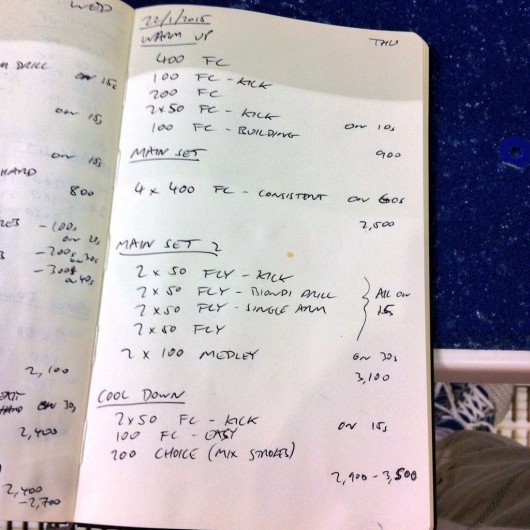 WED
M DRILL
ON 15s
ON 15s
ON 15s
HARD
800
- 100s
ON 20s
- 200s
ON 30s
- 300s
ON 40s
2,100
ON 30s
2,400
2,400
- 2,700
22/1/2015
THU
WARM UP
400 FC
100 FC - KICK
200 FC
2x50 FC - KICK
100 FC - BUILDING ON 10s
900
MAIN SET
4 x 400 FC - CONSISTENT ON 60s
2,500
MAIN SET 2
2 x 50 FLY - KICK
2 x 50 FLY - BIONDI DRILL } ALL ON
2 x 50 FLY - SINGLE ARM 15
2 x 50 FLY
2 x 100 MEDLEY ON 30s
3,100
COOL DOWN
2x50 FC - KICK ON 15s
100 FC - EASY
200 CHOICE (MIX STROKES)
2,900 - 3,500